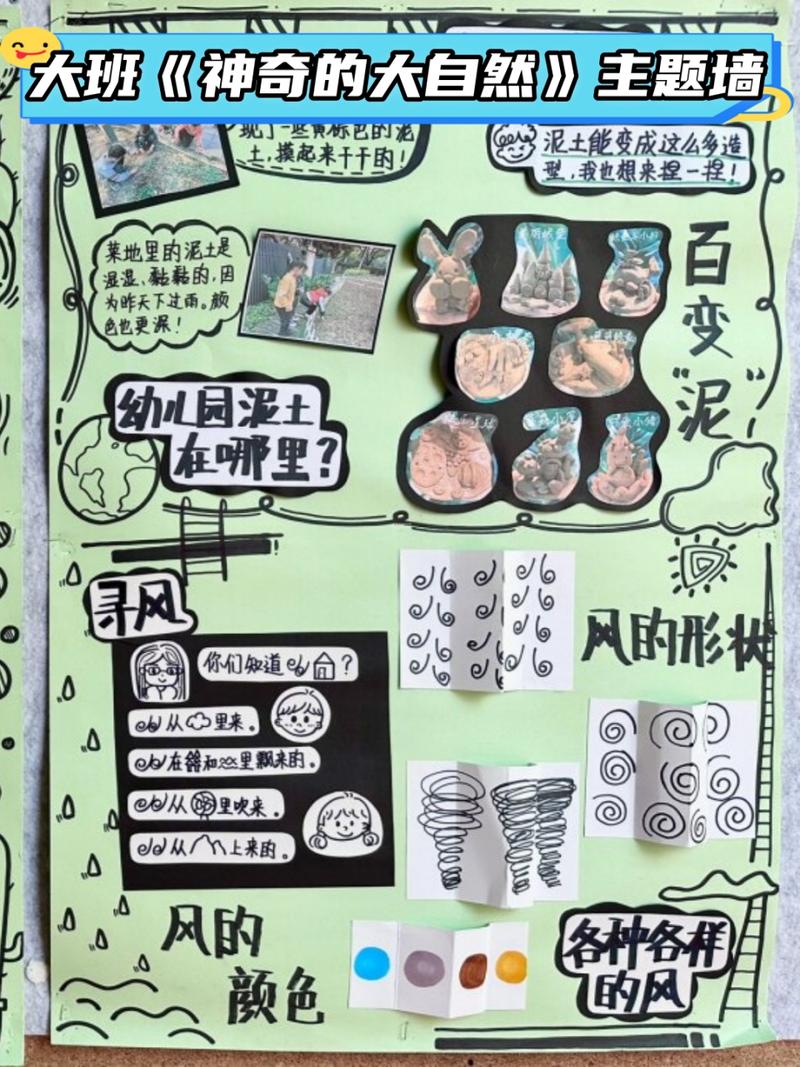 大班《神奇的大自然》主题墙
现了一些黄棕色的泥
土，摸起来干干的！
泥土能变成这么多造
型，我也想来捏一捏！
菜地里的泥土是
湿湿、黏黏的，因
为昨天下过雨。颜
色也更深！
百变“泥”
幼儿园泥土
在哪里？
寻风
你们知道 ？
从 里来。
在 和 里飘来的。
从 里吹来。
从 上来的。
风的形状
风的
颜色
各种各样
的风